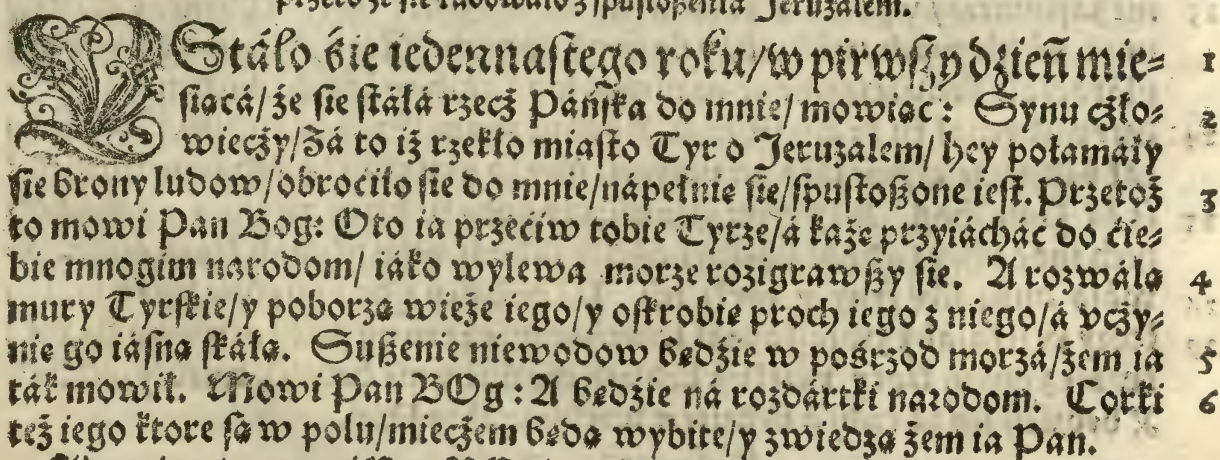 przeto że sie radowało z spustoszenia Jeruzalem.
Stáło sie iedennastego roku/w pirwszy dzień mie= 1
siącá/że sie stáłá rzecz Páńska do mnie/mowiąc: Synu czło= 2
wieczy/Zá to iż rzekło miasto Tyr o Jeruzalem/hey połamáły
sie brony ludow/obrociło sie do mnie/nápełnie sie/spustoszone iest. Przetoż 3
to mowi Pan Bog: Oto ia przeciw tobie Tyrze/á każe przyiácháć do cie=
bie mnogim narodom/iáko wylewa morze rozigrawszy sie. A rozwálą 4
mury Tyrskie/y poborzą wieże iego/y oskrobię proch iego z niego/á vczy=
nie go iásną skáłą. Suszenie niewodow będzie w pośrzod morzá/żem ia 5
ták mowił. Mowi Pan BOg: A będzie ná rozdártki narodom. Corki 6
też iego ktore są w polu/mieczem będą wybite/y zwiedzą żem ia Pan.